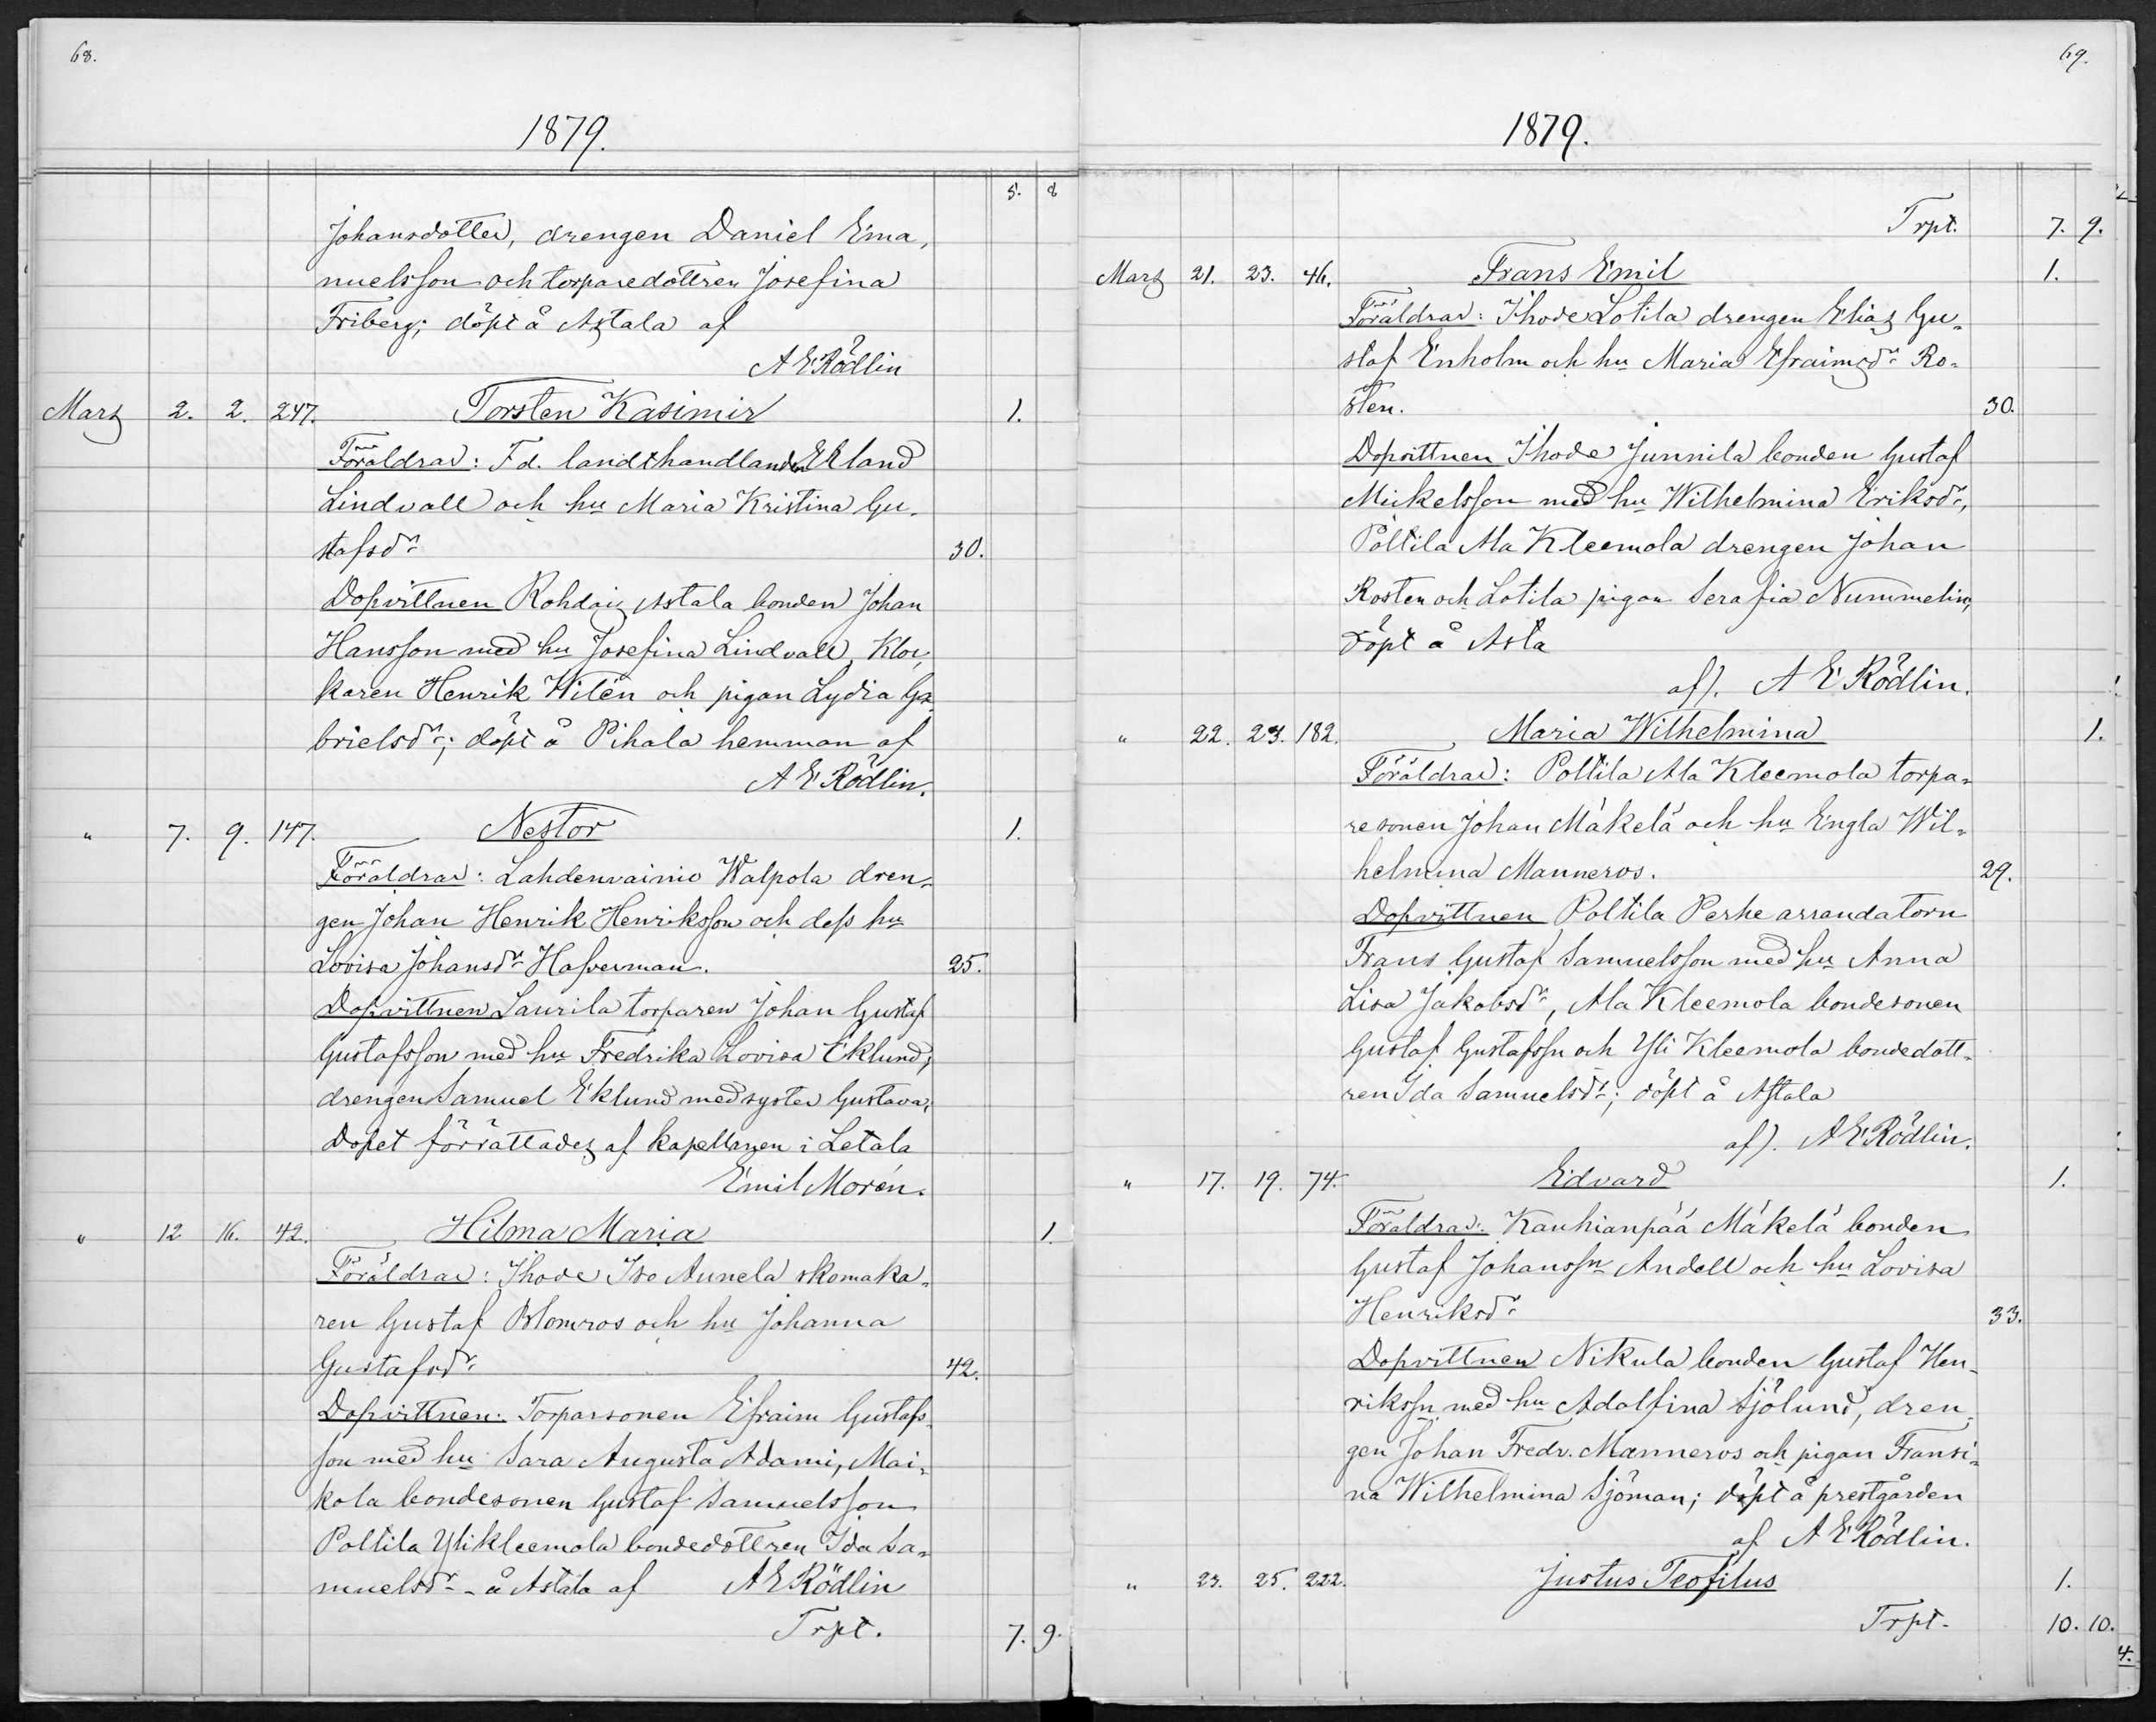 68.
1879.
5. 8
Johansdotter, drengen Daniel Ema,
nuelsson och torparedottren Josefina
Friberg; döpt å Astala af
A E Rödlin
Mars 2. 2. 247. Torsten Kasimir 1.
Föräldrar: F d. landthandlanden Ekland
Lindvall och hu Maria Kristina Gu-
stafsdr 30.
Dopvittnen Rohdais Astala bonden Johan
Hansson med hu Josefina Lindvall, Kloc,
karen Henrik Wilén och pigan Lydia Ga-
brielsdr; döpt å Pihala hemman af
A E Rödlin.
" 7. 9. 147. Nestor 1.
Föräldrar: Lahdenvainio Walpola dren-
gen Johan Henrik Henriksson och dess hu
Lovisa Johansdr Hafverman. 25.
Dopvittnen Laurila torparen Johan Gustaf
Gustafsson med hu Fredrika Lovisa Eklund;
drengen Samuel Eklund med syster Gustava,
Dopet förrättades af kapellanen i Letala
Emil Morén.
" 12 16. 42. Hilma Maria 1.
Föräldrar: Ihode Iso Aunela skomaka-
ren Gustaf Blomros och hu Johanna
Gustafsdr 42.
Dopvittnen: Torparsonen Efraim Gustafs-
son med hu Sara Augusta Adami, Mai-
kola bondesonen Gustaf Samuelsson
Poltila Ylikleemola bondedottren Ida Sa-
muelsdr - å Astala af A E Rödlin
Trpt. 7. 9.
69.
1879.
Trpt. 7. 9.
Mars 21. 23. 46. Frans Emil 1.
Föräldrar: Ihode Lotila drengen Elias Gu-
staf Enholm och hu Maria Efraimsdr Ro-
sten. 30.
Dopvittnen Ihode Junnila bonden Gustaf
Mickelsson med hu Wilhelmina Eriksdr,
Poltila Ala Kleemola drengen Johan
Rosten och Lotila pigan Serafia Nummelin,
döpt å Asta
af). A E Rödlin.
" 22. 23. 182. Maria Wilhelmina 1.
Föräldrar: Poltila Ala Kleemola torpa-
resonen Johan Mäkelä och hu Engla Wil-
helmina Manneros. 29.
Dopvittnen Poltila Perhe arrendatorn
Frans Gustaf Samuelsson med hu Anna
Lisa Jakobsdr, Ala Kleemola bondesonen
Gustaf Gustafssn och Yli Kleemola bondedott-
ren Ida Samuelsdr; döpt å Astala
af). A E Rödlin.
" 17. 19. 74. Edvard 1.
Föräldrar: Kauhianpää Mäkelä bonden
Gustaf Johanssn Andell och hu Lovisa
Henriksdr 33.
Dopvittnen Nikula bonden Gustaf Hen-
rikssn med hu Adolfina Sjölund, dren-
gen Johan Fredr. Manneros och pigan Fransi-
na Wilhelmina Sjöman; döpt å prestgården
af A E Rödlin.
" 23. 25. 222. Justus Teofilus 1.
Trpt. 10. 10.
4.